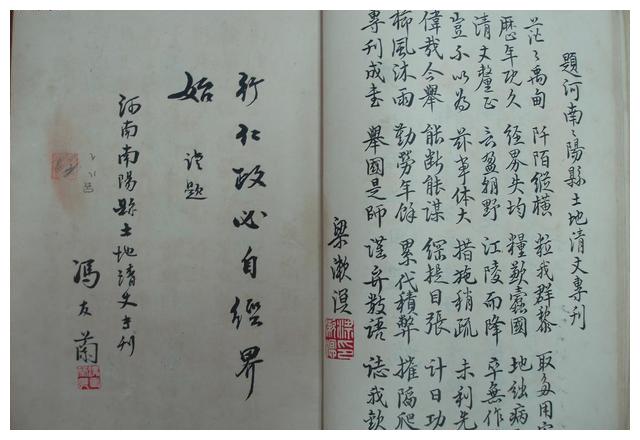 題河南〻陽縣土地清丈專刊
茫〻禹甸 阡陌縱橫 粒我群黎 取多用
歷年既久 經界失均 糧歉蠹國 地絀病
清丈釐正 云盈朝野 江陵而降 卒無作
豈不以為 茲事体大 措施稍疏 未利先
偉哉今舉 能斷能謀 綱提目張 計日功
櫛風沐雨 勤勞年餘 累代積弊 摧陷爬
專刊成書 舉國是師 謹弁數語 誌我欽
梁漱溟
行仁政必自經界
始 謹題
河南南陽縣土地清丈專刊
馮友蘭